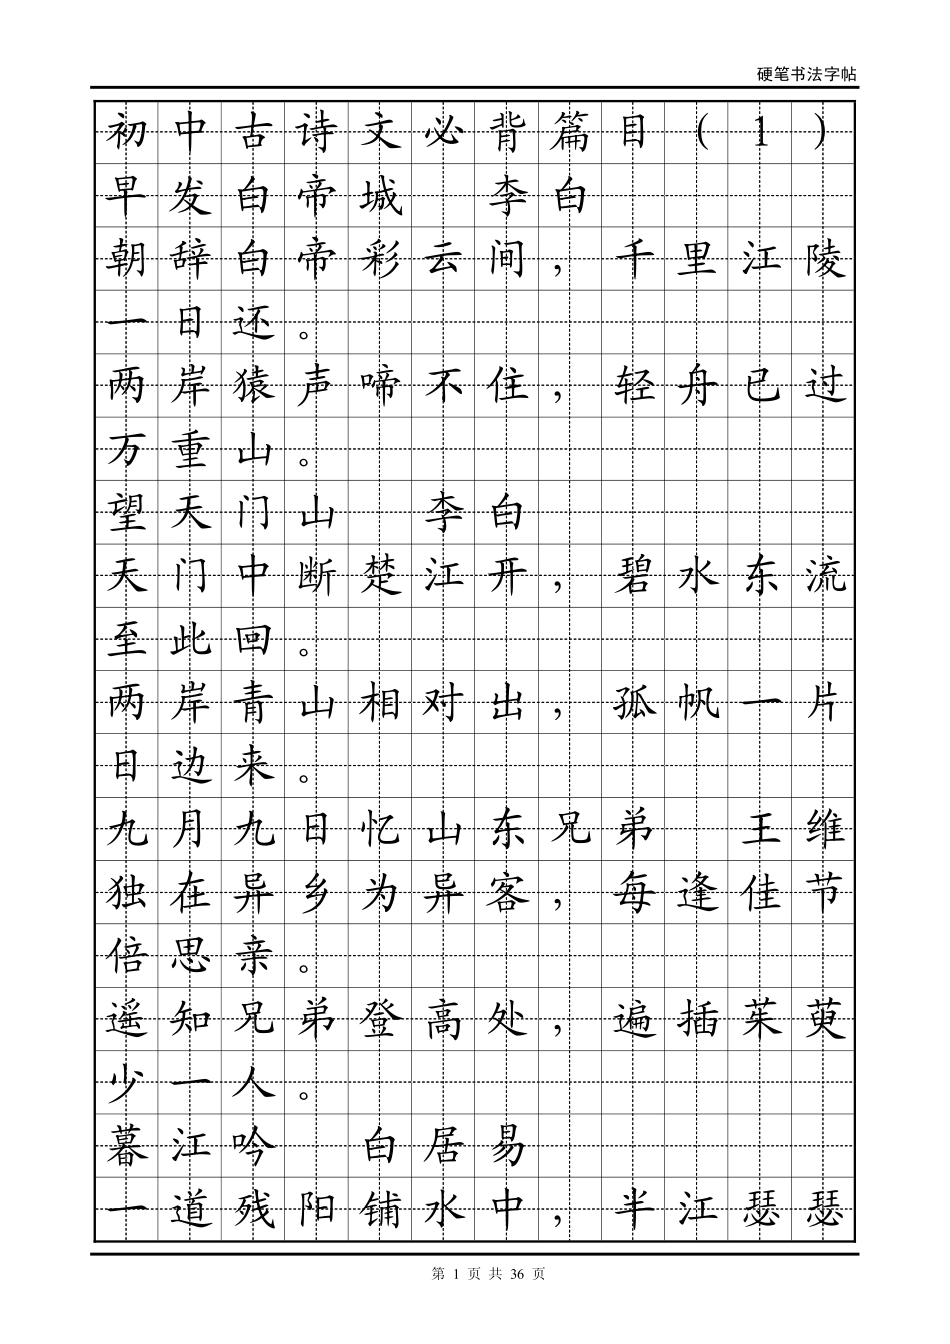 硬笔书法字帖
初中古诗文必背篇目(1)
早发白帝城 李白
朝辞白帝彩云间，千里江陵
一日还。
两岸猿声啼不住，轻舟已过
万重山。
望天门山 李白
天门中断楚江开，碧水东流
至此回。
两岸青山相对出，孤帆一片
日边来。
九月九日忆山东兄弟 王维
独在异乡为异客，每逢佳节
倍思亲。
遥知兄弟登高处，遍插茱萸
少一人。
暮江吟 白居易
一道残阳铺水中，半江瑟瑟
第 1 页 共 36 页